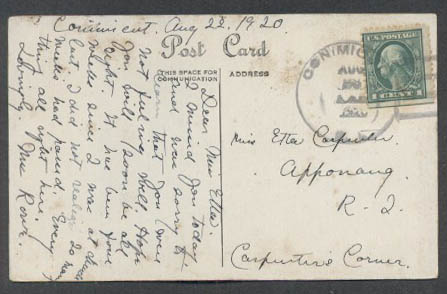 Conimicut. Aug 22, 1920.
Post Card
THIS SPACE FOR
COMMUNICATION
ADDRESS
Dear Miss Etta.
I missed you today,
and was sorry to
learn that you were
not feeling well. Hope
you will soon be all
right. It has been four
weeks since I was at
but I did not realize so many
weeks had passed. Every
thing all right here.
Lovingly, Mrs
CONIMIC
AUG
1920
U.S. POSTAGE
1 CENT 1
Miss Etta Carpenter.
Apponaug.
R. I.
Carpenter's Corner.